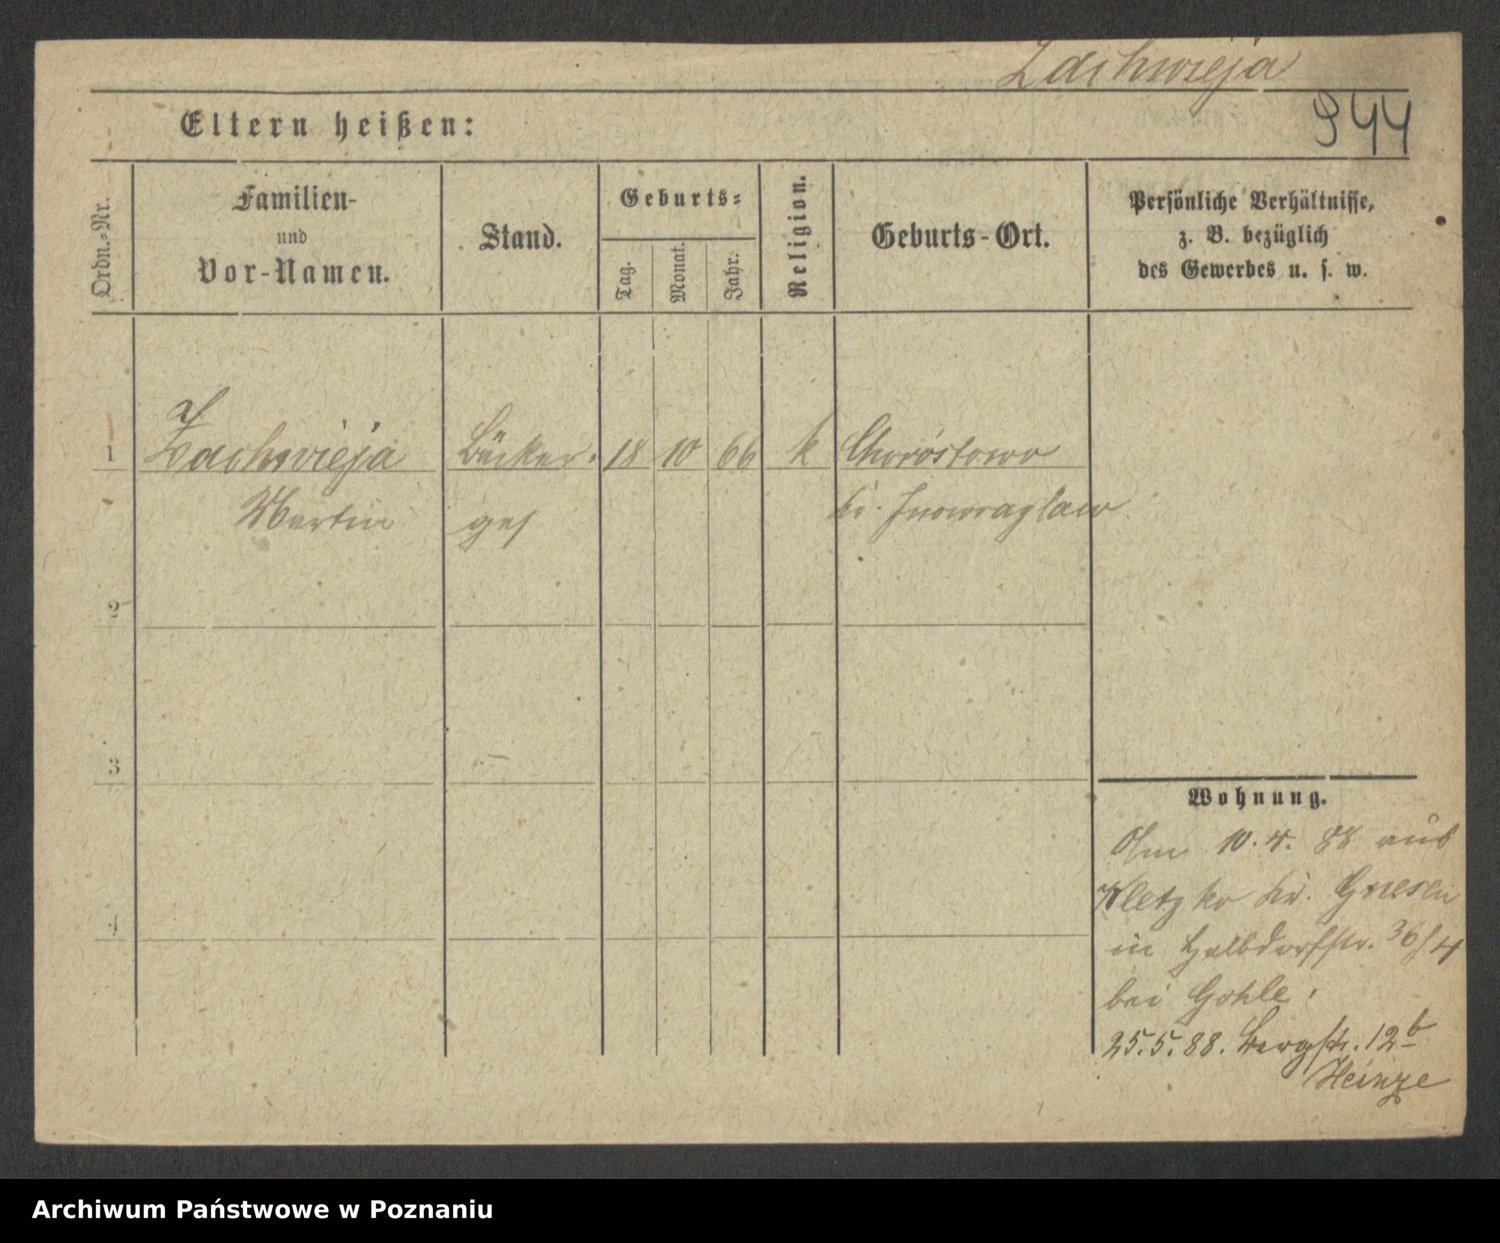 Zachwieja
944
Eltern heißen:
Ordn.-Nr.
Familien-
und
Vor-Namen.
Stand.
Geburts-
Tag.
Monat.
Jahr.
Religion.
Geburts-Ort.
Persönliche Verhältnisse,
z. B. bezüglich
des Gewerbes u. s. w.
1 Zachwieja Bäcker- 18 10 66 k Chróstowo
Martin ges Kr. Inowraglaw
2
3
4
Wohnung.
10. 4. 88 aus
Kletzko Kr. Gnesen
in Halbdorfstr. 36/4
bei Gohle.
25.5.88. Bergstr. 12b
Heinze
Archiwum Państwowe w Poznaniu